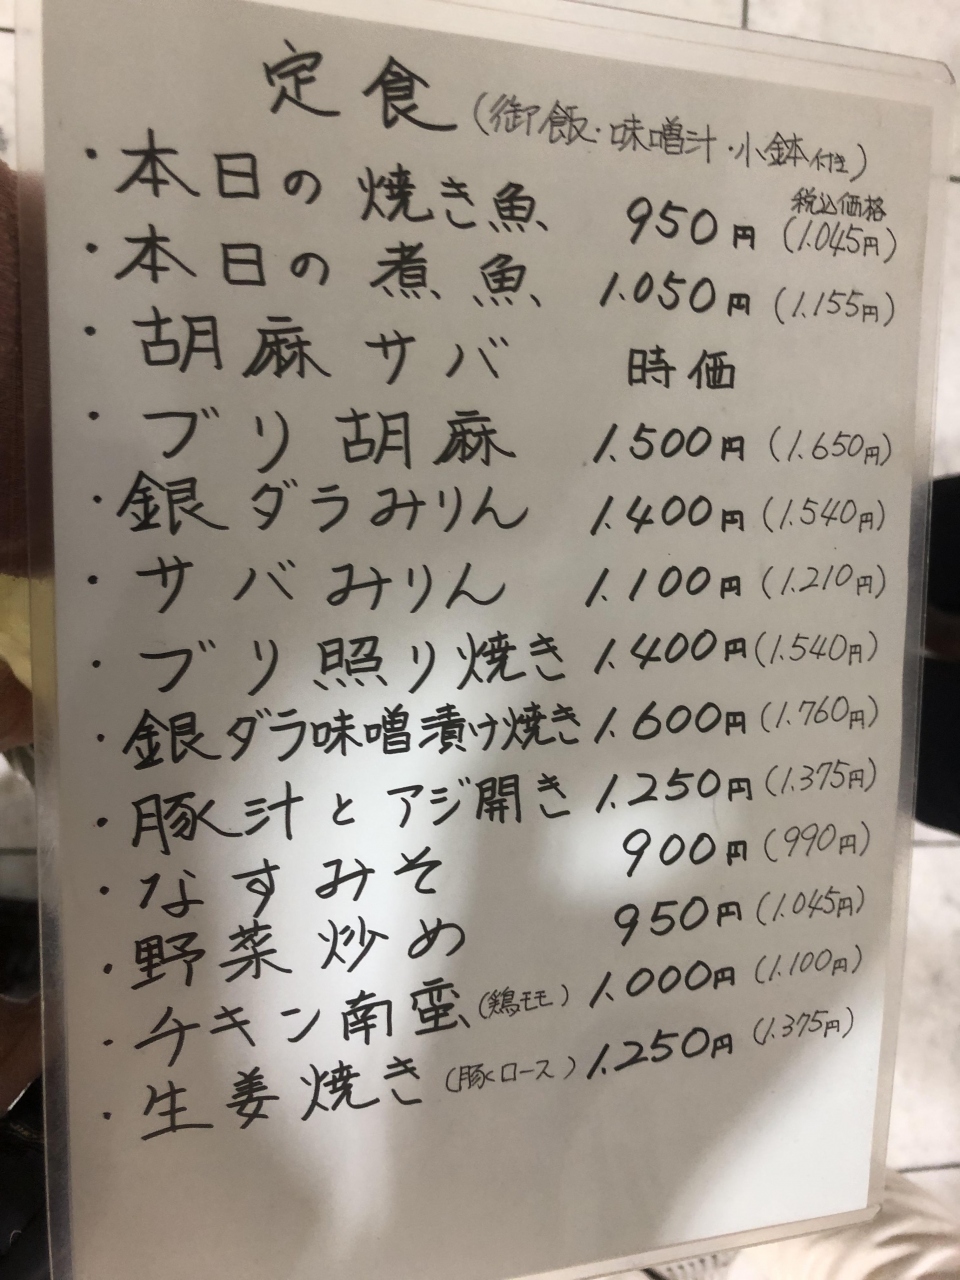 定食(御飯・味噌汁・小鉢付き)
税込価格
・本日の焼き魚 950円 (1.045円)
・本日の煮魚 1.050円 (1.155円)
・胡麻サバ 時価
・ブリ胡麻 1.500円 (1.650円)
・銀ダラみりん 1.400円 (1.540円)
・サバみりん 1.100円 (1.210円)
・ブリ照り焼き 1.400円 (1.540円)
・銀ダラ味噌漬け焼き 1.600円 (1.760円)
・豚汁とアジ開き 1.250円 (1.375円)
・なすみそ 900円 (990円)
・野菜炒め 950円 (1.045円)
・チキン南蛮(鶏モモ) 1.000円 (1.100円)
・生姜焼き(豚ロース) 1.250円 (1.375円)